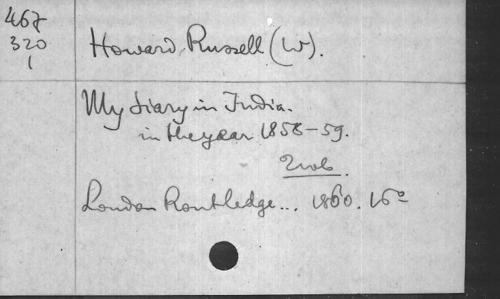 467
320
1
Howard Russell (W).
My diary in India.
in the year 1858-59.
2 vols.
London Routledge... 1860. 16°